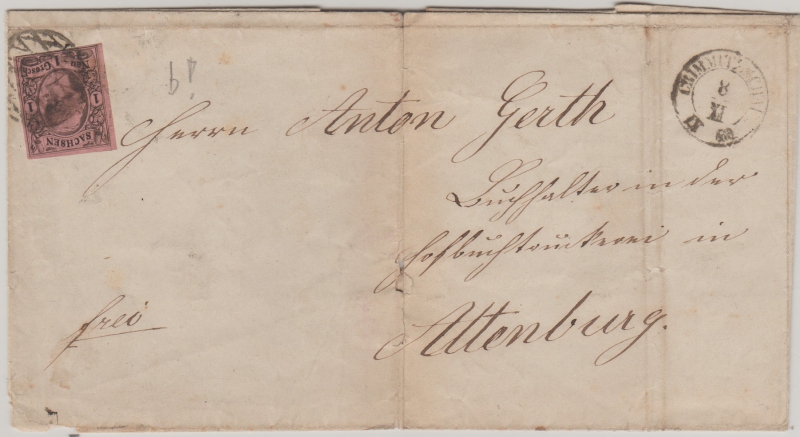 Neu-Grosch.
1
1
1
SACHSEN
CRIMMITZSCHAU
8
XI
60
Herrn Anton Gerth
Buchhalter in der
Hofbuchdruckerei in
Altenburg.
frei